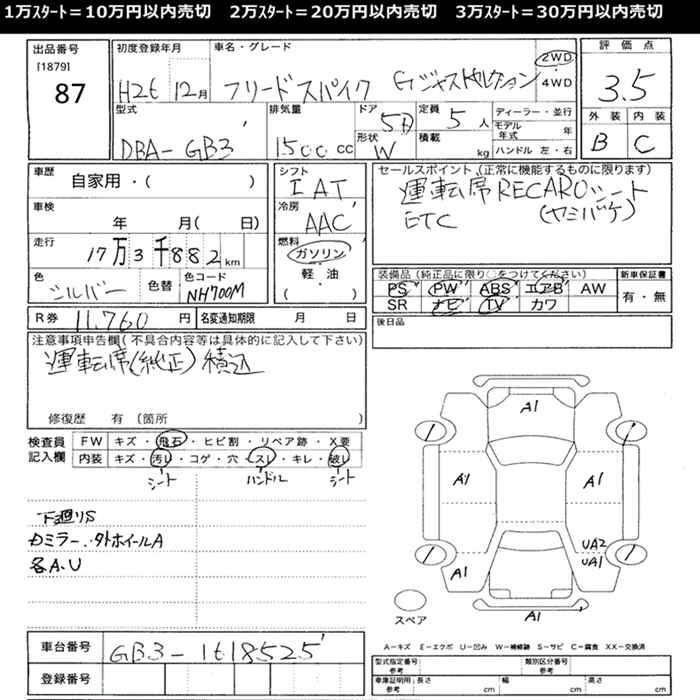 1万スタート＝10万円以内売切　2万スタート＝20万円以内売切　3万スタート＝30万円以内売切
出品番号
[1879]
87
初度登録年月
H26 12月
車名・グレード
フリードスパイク Gジャストセレクション
2WD
4WD
評価点
3.5
外装 内装
B C
型式
DBA-GB3
排気量
1500 CC
ドア
5D
形状
W
定員
5 人
積載
kg
ディーラー・並行
モデル年式 年
ハンドル 左・右
車歴
自家用・( )
車検
年 月( 日)
走行
17万3千882km
色
シルバー
色替
色コード
NH700M
シフト
IAT
冷房
AAC
燃料
ガソリン
軽・油
( )
セールスポイント（正常に機能するものに限ります）
運転席RECAROシート
ETC
装備品（純正品に限り○をつけてください）
PS PW ABS エアB AW
SR ナビ TV カワ
新車保証書
有・無
R券 11,760 円
名変通知期限 月 日
後日品
注意事項申告欄(不具合内容等は具体的に記入して下さい)
運転席(純正)積込
修復歴 有〔箇所 〕
検査員記入欄
FW キズ・飛石・ヒビ割・リペア跡・X要
内装 キズ・汚レ・コゲ・穴・スレ・キレ・破レ
シート ハンドル シート
下廻りS
カミラー・タトホイールA
各A.U
A1
A1
A1
A1
UA2
UA1
A1
スペア
車台番号
GB3-1618525
登録番号
A－キズ E－エクボ U－凹み W－補修跡 S－サビ C－腐食 XX－交換済
型式指定番号 参考
類別区分番号 参考
車庫証明用 参考
長さ cm
幅 cm
高さ cm